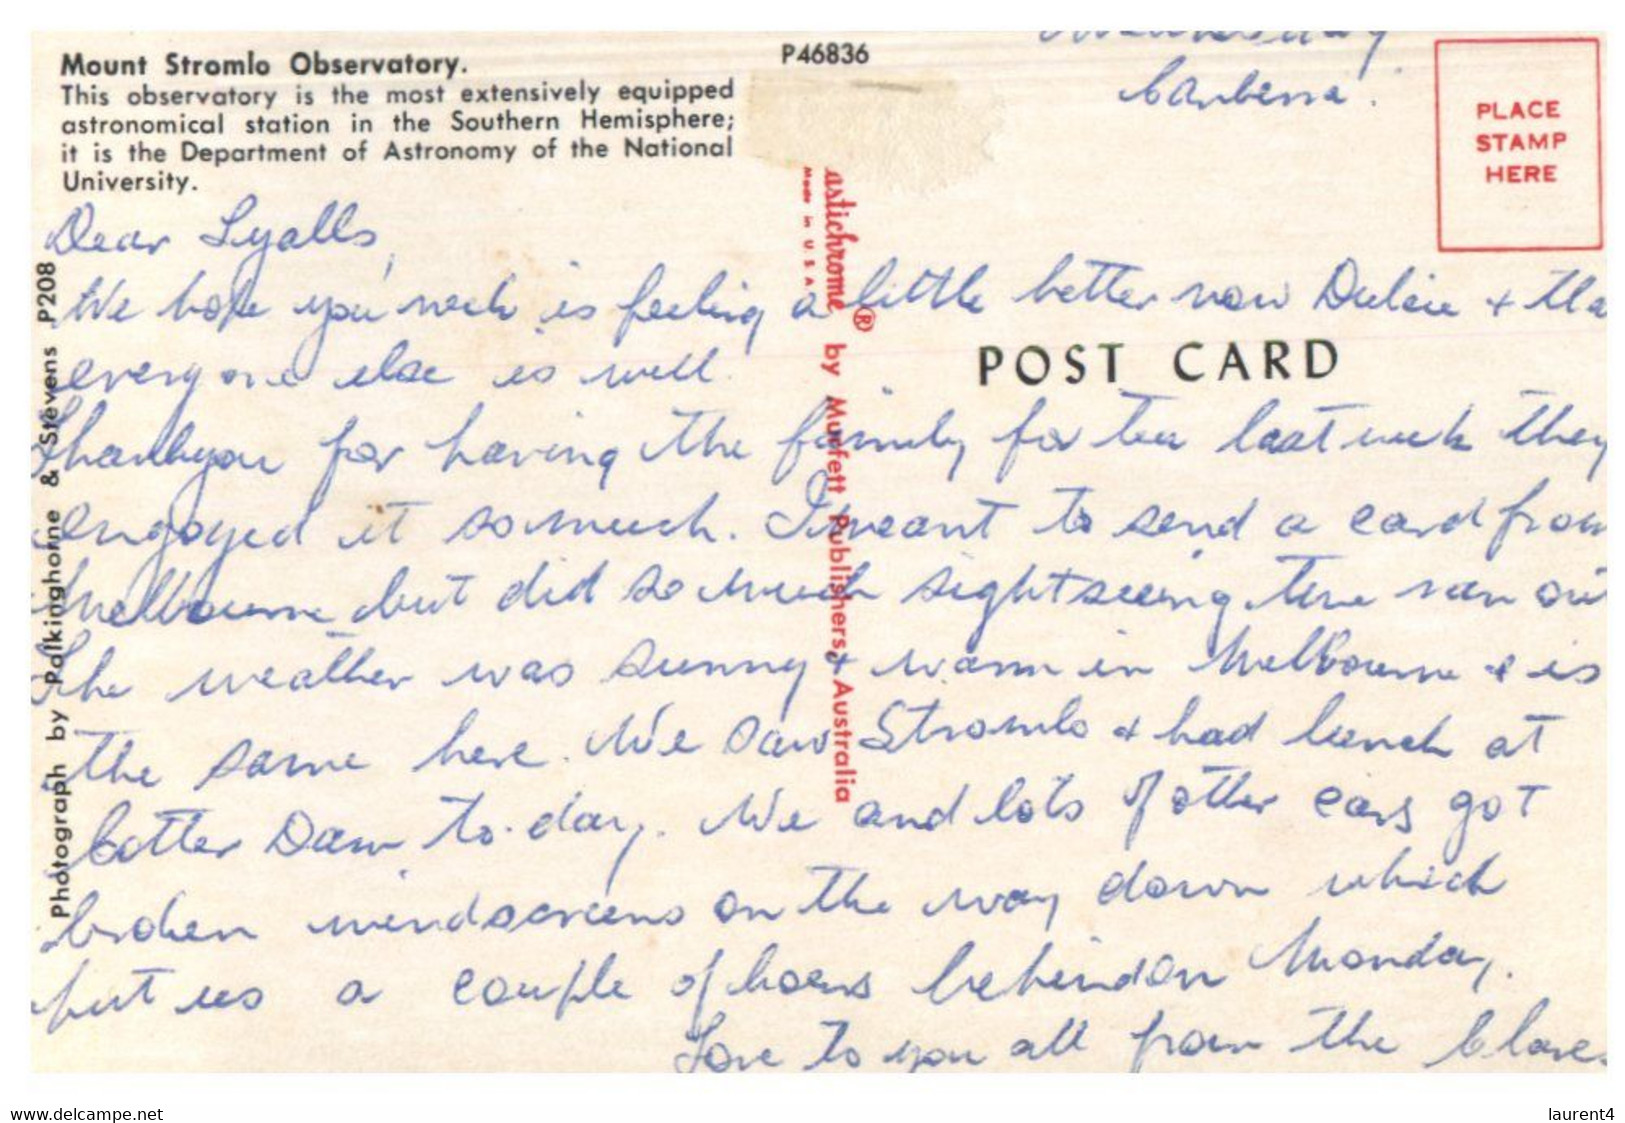 Mount Stromlo Observatory.
This observatory is the most extensively equipped
astronomical station in the Southern Hemisphere;
it is the Department of Astronomy of the National
University.
P46836
Wednesday
Canberra.
PLACE
STAMP
HERE
Dear Lyalls,
We hope your neck is feeling a little better now Dulcie + tha
everyone else is well.
POST CARD
Thankyou for having the family for tea last week they
engoyed it so much. I meant to send a card from
Melbourne but did so much sightseeing time ran out
The weather was sunny + warm in Melbourne + is
the same here. We saw Stromlo + had lunch at
Cotter Dam to-day. We and lots of other cars got
broken windscreens on the way down which
put us a couple of hours behind on Monday.
Love to you all from the
Photograph by Palkinghorne & Stevens P208
astichrome® by Murfett Publishers, Australia
Made in U.S.A.
www.delcampe.net
laurent4